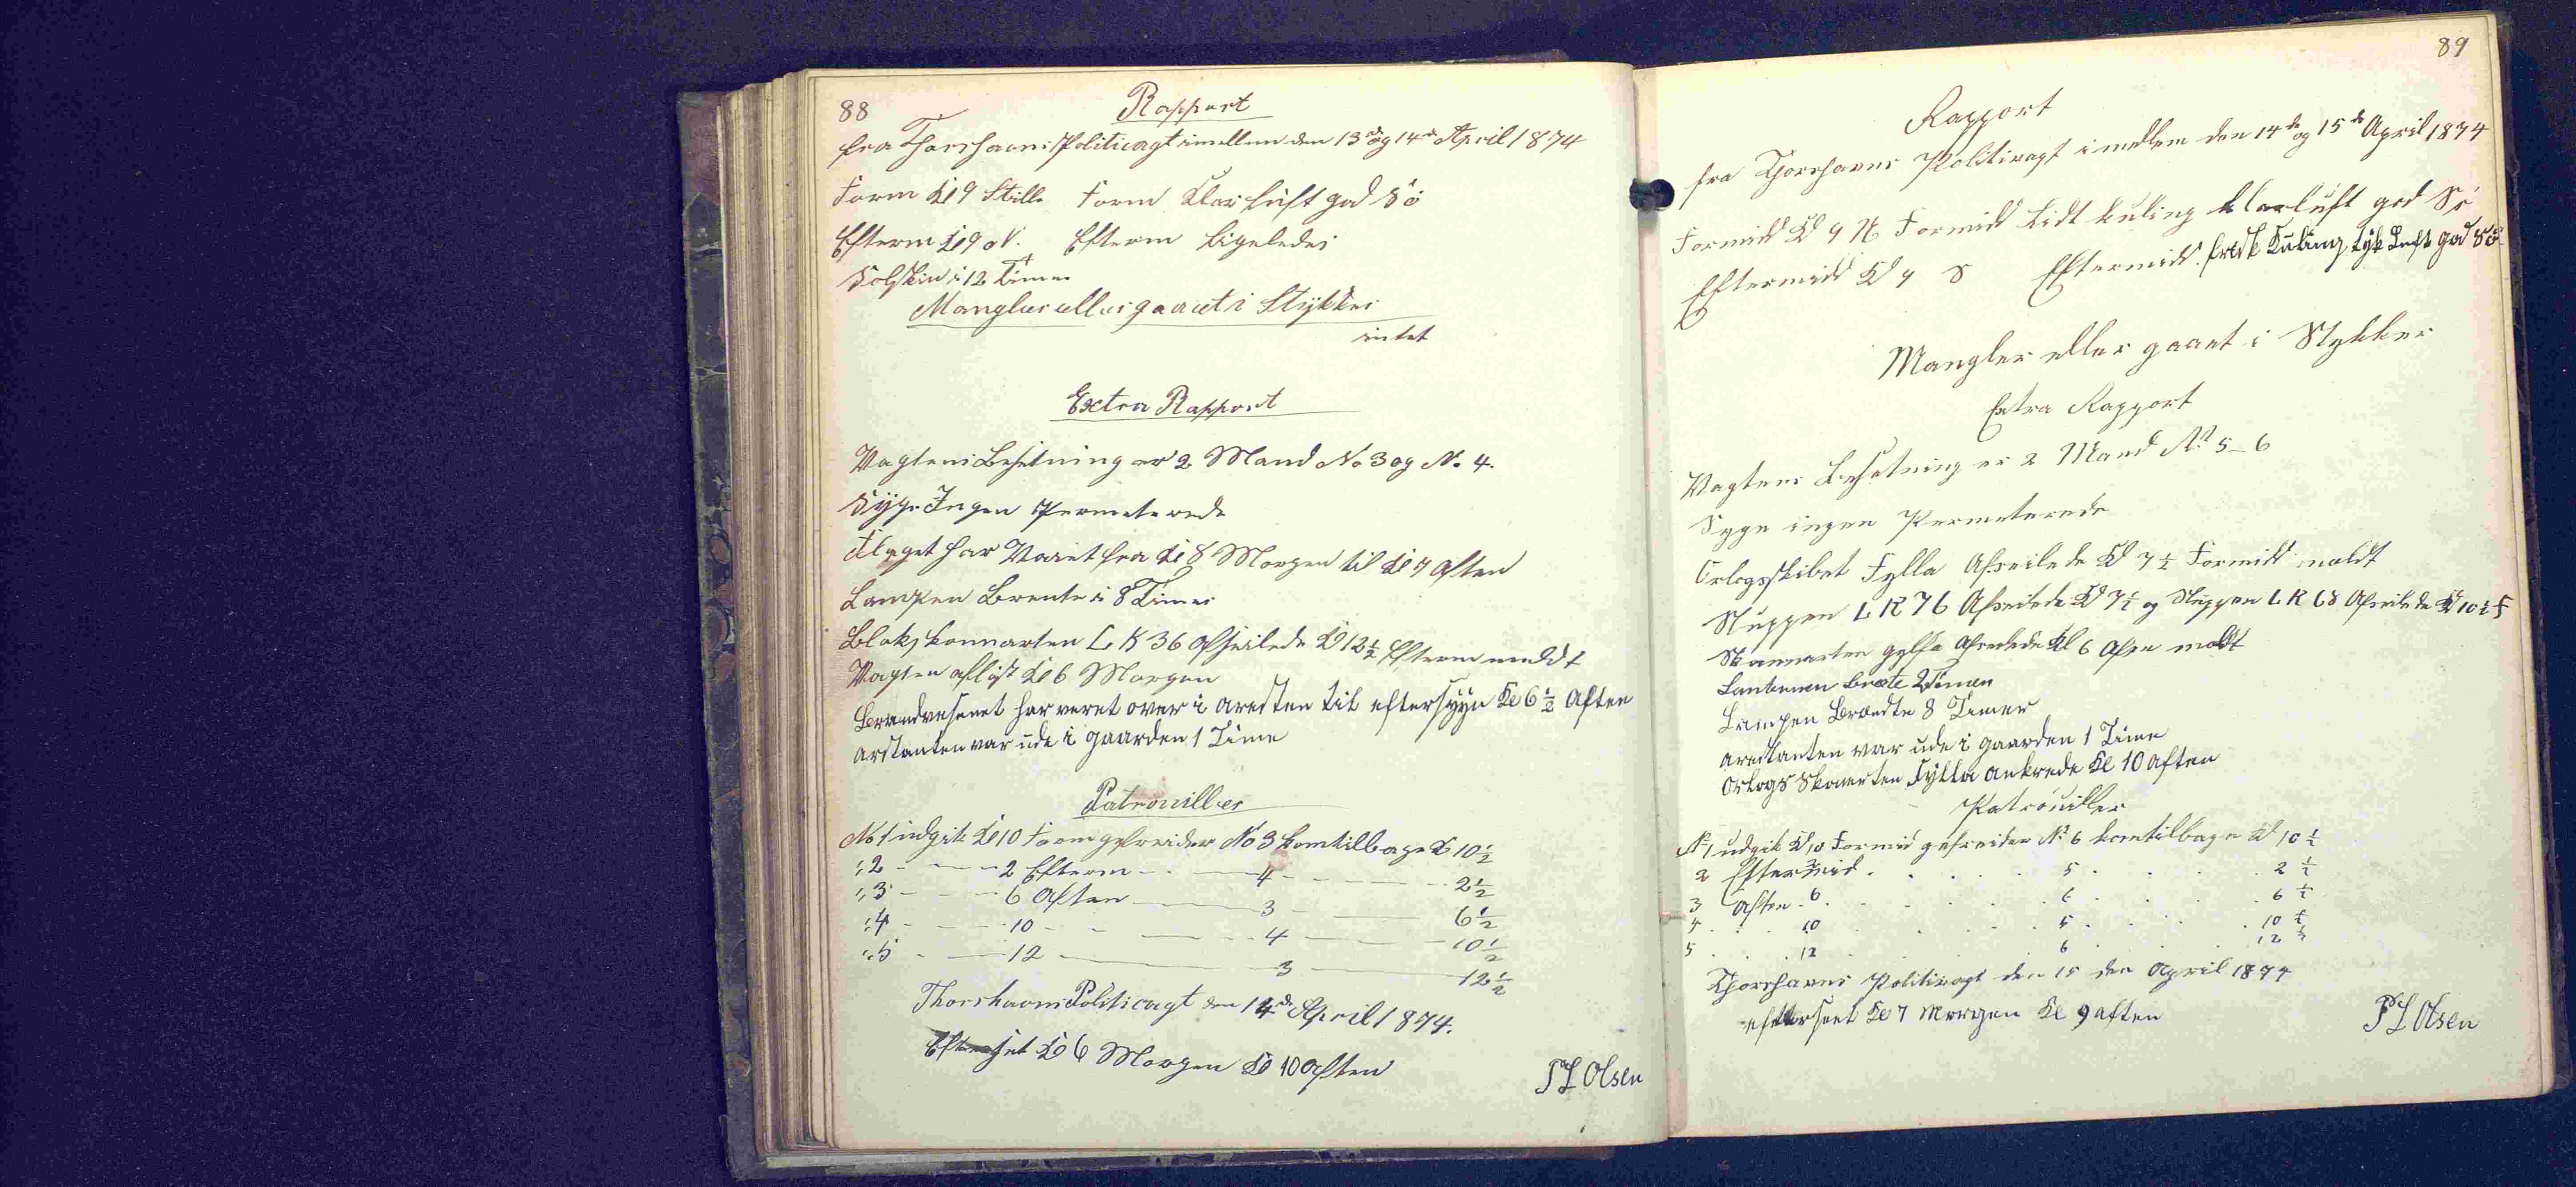 88
Rapport
fra Thorshavns Politivagt imellem den 13de og 14de April 1874
Form Kl 9 Stille Form Klar luft god Sö
Efterm Kl 9 V. Efterm ligeledes
Solskin i 12 Timer
Mangler eller gaaet i Stykker
intet
Extra Rapport
Vagtens Besetning er 2 Mand No 3 og No 4.
Syge Ingen Permeterede
Flaget har Vaiet fra Kl 8 Morgen til Kl 7 Aften
Lampen Brente i 8 Timer
Skonnarten L K 36 Afseilede Kl 12½ Efterm meldt
Vagten aflöst Kl 6 Morgen
Brandvesenet har veret over i Aresten til eftersyyn Kl 6½ Aften
Arstanten var ude i gaarden 1 Time
Patrouiller
No 1 udgik Kl 10 Form gefreider No 3 kom tilbage Kl 10½
" 2 - - - 2 Efterm - - 4 - - - 2½
" 3 - - - 6 Aften - - 3 - - 6½
" 4 - - - 10 - - - 4 - - 10½
" 5 - - 12 - - 3 - - 12½
Thorshavns Politivagt den 14de April 1874.
Efterset Kl 6 Morgen Kl 10 Aften
P L Olsen
89
Rapport
fra Thorshavns Politivagt imellem den 14de og 15de April 1874
Formidd Kl 9 N Formidd Lidt kuling klarluft god Sö
Eftermidd Kl 9 S Eftermidd. frisk Kuling tyk Luft god Sö
Mangler eller gaaet i Stykker
Extra Rapport
Vagtens Besetning er 2 Mand No 5-6
Syge ingen Permeterede
Orlogsskibet Fylla Afseilede Kl 7½ Formidd meldt
Sluppen L K 76 Afseilede Kl 7½ og Sluppen L K 68 Afseilede Kl 10½ F
Skonnarten Afseilede Kl 6 Aften meldt
Lanternen brente 2 Timer
Lampen Brændte 8 Timer
Arestanten var ude i gaarden 1 Time
Orlogs Skonerten Fylla ankrede Kl 10 Aften
Patrouiller
No 1 udgik Kl 10 Formid gefreider No 6 kom tilbage Kl 10½
2 Eftermid . . . . 5 . . . 2½
3 Aften . 6 . . . . 6 . . . 6½
4 . . 10 . . . 5 . . . 10½
5 . . 12 . . . 6 . . . 12½
Thorshavns Politivagt den 15 den April 1874
efterseet Kl 7 Morgen Kl 9 aften
P L Olsen